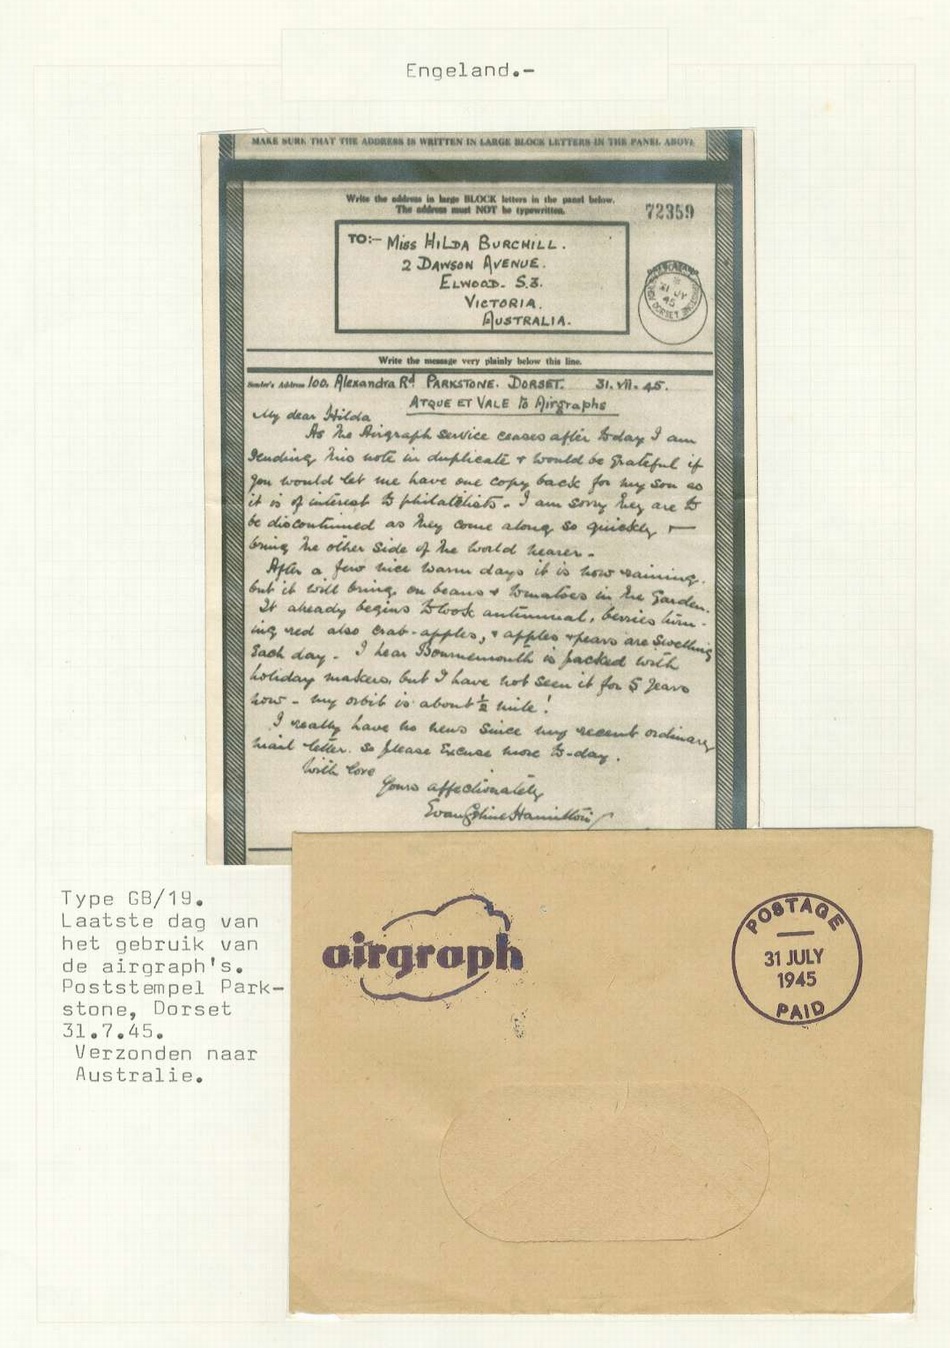 Engeland.-
MAKE SURE THAT THE ADDRESS IS WRITTEN IN LARGE BLOCK LETTERS IN THE PANEL ABOVE
Write the address in large BLOCK letters in the panel below.
The address must NOT be typewritten.
72359
TO:- MISS HILDA BURCHILL.
2 DAWSON AVENUE.
ELWOOD. S.3.
VICTORIA.
AUSTRALIA.
31 JY
45
DORSET
Write the message very plainly below this line.
Sender's Address 100, Alexandra Rd PARKSTONE. DORSET. 31.VII.45.
ATQUE ET VALE to Airgraphs
My dear Hilda
As the Airgraph service ceases after to-day I am
sending this note in duplicate & would be grateful if
you would let me have one copy back for my son as
it is of interest to philatelists. I am sorry they are to
be discontinued as they come along so quickly &
bring the other side of the world nearer.
After a few nice warm days it is now raining.
but it will bring on beans & tomatoes in the garden.
It already begins to look autumnal, berries turn-
ing red also crab-apples, & apples & pears are swelling
each day. I hear Bournemouth is packed with
holiday makers, but I have not seen it for 5 years
now - my orbit is about ½ mile!
I really have no news since my recent ordinary
mail letter. so please excuse more to-day.
With love
Yours affectionately
Evangeline Hamilton
Type GB/19.
Laatste dag van
het gebruik van
de airgraph's.
Poststempel Park-
stone, Dorset
31.7.45.
Verzonden naar
Australie.
airgraph
POSTAGE
31 JULY
1945
PAID